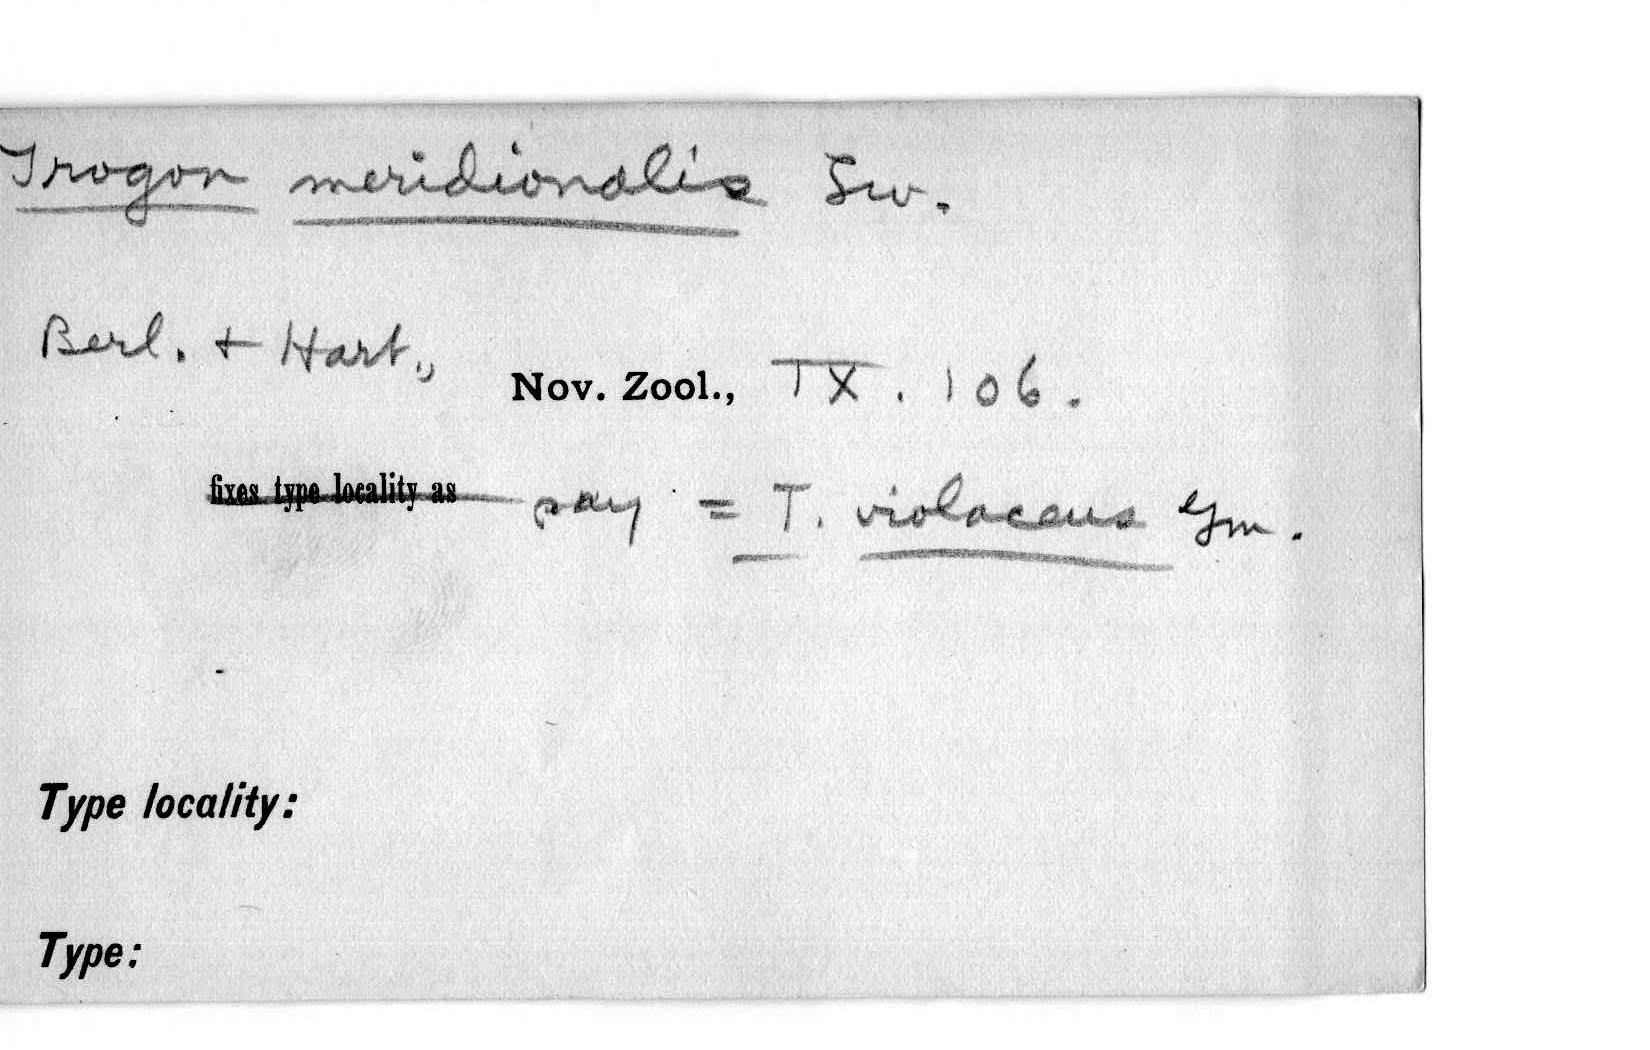 Trogon meridionalis Sw.
Berl. + Hart., Nov. Zool., IX. 106.
fixes type locality as say = T. violaceus Gm.
Type locality:
Type: